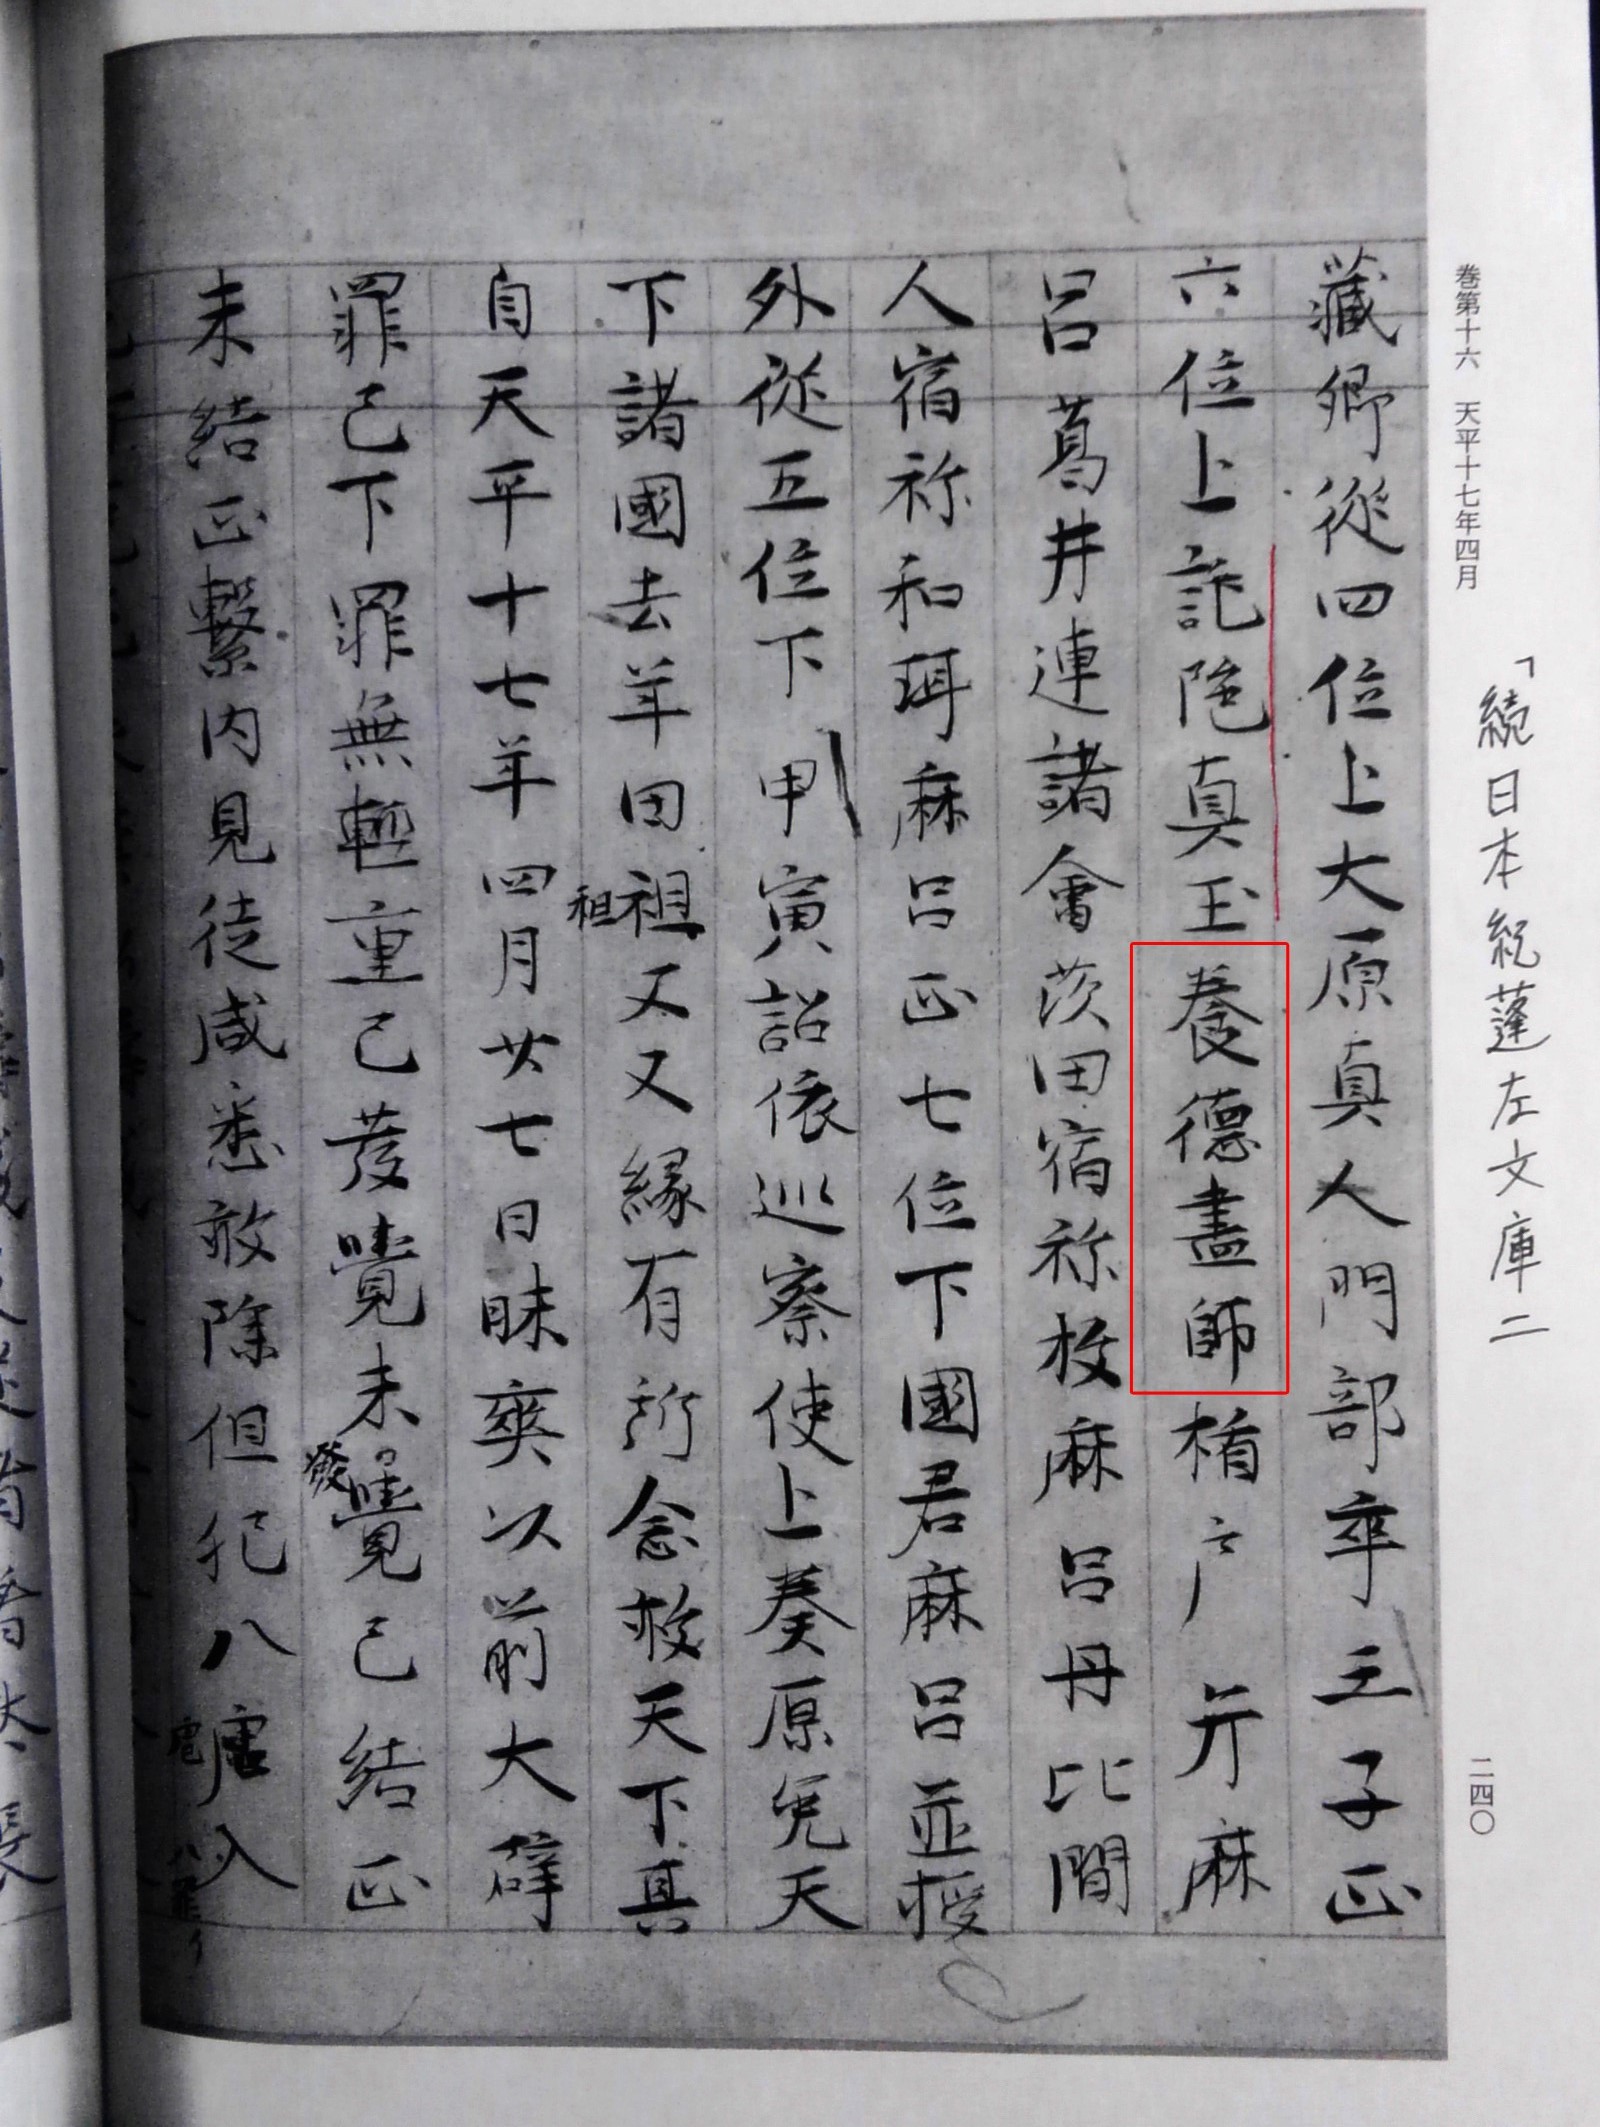 巻第十六　天平十七年四月
「続日本紀蓬左文庫二
二四〇
藏卿從四位上大原真人門部卒王子正
六位上託陁真玉養德畫師楯戸弁麻
呂葛井連諸會茨田宿祢枚麻呂丹比間
人宿祢和珥麻呂正七位下國君麻呂並授
外從五位下甲寅詔依巡察使上奏原免天
下諸國去年田祖又又緣有所念救天下真
租
自天平十七年四月廿七日昧爽以前大辟
罪已下罪無輕重已發覺未覺已結正
發
未結正繫内見徒咸悉敕除但犯八虐入